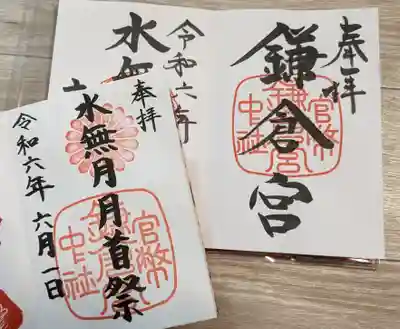 奉拝
鎌倉宮
官幣中社
鎌倉宮
令和六年
水無
奉拝
水無月月首祭
令和六年六月一日
官幣中社
鎌倉宮